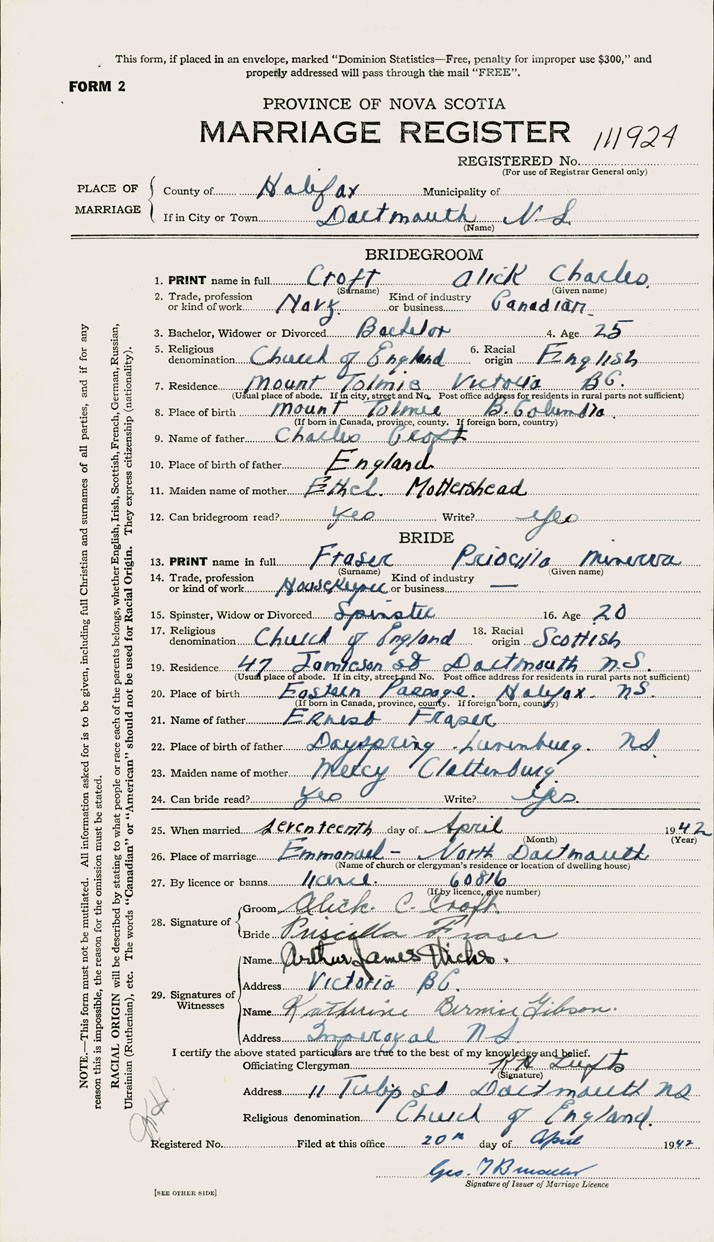 This form, if placed in an envelope, marked “Dominion Statistics—Free, penalty for improper use $300,” and
properly addressed will pass through the mail “FREE”.
FORM 2
PROVINCE OF NOVA SCOTIA
MARRIAGE REGISTER 111924
REGISTERED No.
(For use of Registrar General only)
PLACE OF MARRIAGE
County of Halifax Municipality of
If in City or Town Dartmouth N.S.
(Name)
BRIDEGROOM
1. PRINT name in full Croft Alick Charles
(Surname) (Given name)
2. Trade, profession or kind of work Navy Kind of industry or business Canadian
3. Bachelor, Widower or Divorced Bachelor 4. Age 25
5. Religious denomination Church of England 6. Racial origin English
7. Residence Mount Tolmie Victoria BC.
(Usual place of abode. If in city, street and No. Post office address for residents in rural parts not sufficient)
8. Place of birth Mount Tolmie B. Columbia
(If born in Canada, province, county. If foreign born, country)
9. Name of father Charles Croft
10. Place of birth of father England
11. Maiden name of mother Ethel. Mottershead
12. Can bridegroom read? Yes Write? Yes
BRIDE
13. PRINT name in full Fraser Priscilla Minerva
(Surname) (Given name)
14. Trade, profession or kind of work Housekeeper Kind of industry or business —
15. Spinster, Widow or Divorced Spinster 16. Age 20
17. Religious denomination Church of England 18. Racial origin Scottish
19. Residence 47 Jamieson St Dartmouth N.S.
(Usual place of abode. If in city, street and No. Post office address for residents in rural parts not sufficient)
20. Place of birth Eastern Passage. Halifax NS.
(If born in Canada, province, county. If foreign born, country)
21. Name of father Ernest Fraser
22. Place of birth of father Dayspring Lunenburg. NS
23. Maiden name of mother Mercy Clattenburg
24. Can bride read? Yes Write? Yes.
25. When married seventeenth day of April 1942
(Month) (Year)
26. Place of marriage Emmanuel - North Dartmouth
(Name of church or clergyman's residence or location of dwelling house)
27. By licence or banns licence 60816
(If by licence, give number)
28. Signature of Groom Alick. C. Croft
Bride Priscilla Fraser
29. Signatures of Witnesses
Name Arthur James Hicks.
Address Victoria BC.
Name Katherine Bernice Gibson.
Address Imperoyal NS
I certify the above stated particulars are true to the best of my knowledge and belief.
Officiating Clergyman
(Signature)
Address 11 Tulip St Dartmouth NS
Religious denomination Church of England.
Registered No. Filed at this office 20th day of April 1942
Geo.
Signature of Issuer of Marriage Licence
[SEE OTHER SIDE]
NOTE.—This form must not be mutilated. All information asked for is to be given, including full Christian and surnames of all parties, and if for any
reason this is impossible, the reason for the omission must be stated.
RACIAL ORIGIN will be described by stating to what people or race each of the parents belongs, whether English, Irish, Scottish, French, German, Russian,
Ukrainian (Ruthenian), etc. The words “Canadian” or “American” should not be used for Racial Origin. They express citizenship (nationality).